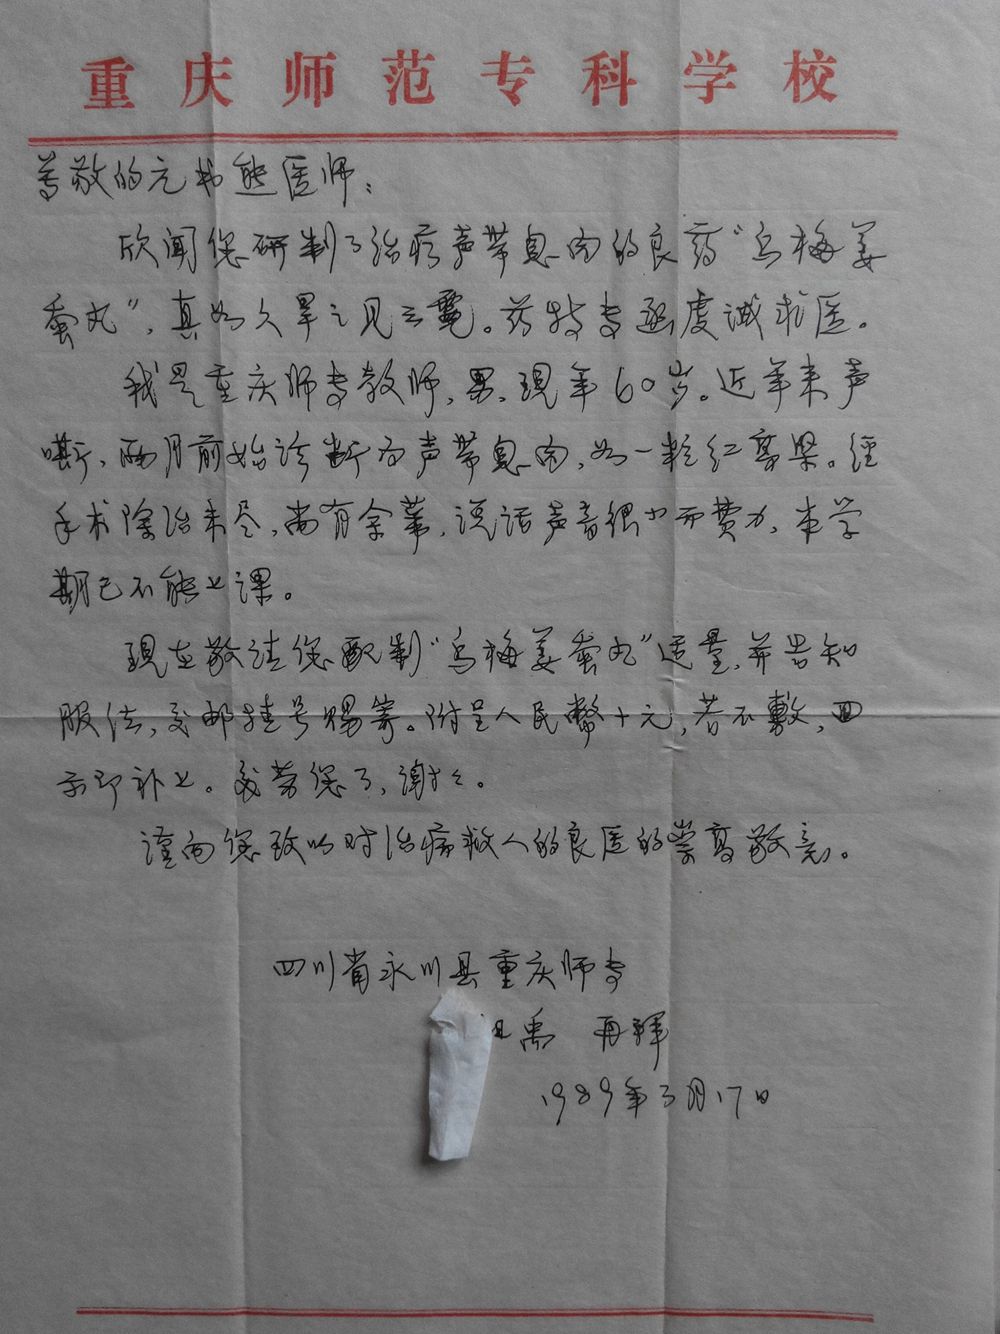 重庆师范专科学校
尊敬的元书熊医师：
欣闻您研制了治疗声带息肉的良药“乌梅姜
蚕丸”，真如久旱之见云霓。药特专函虔诚求医。
我是重庆师专教师，男，现年60岁。近年来声
嘶，两月前始诊断为声带息肉，如一粒红高粱。经
手术除治未尽，尚有余蒂，说话声音很小而费力，本学
期已不能上课。
现在敬请您配制“乌梅姜蚕丸”适量，并告知
服法，交邮挂号赐寄。附呈人民币十元，若不敷，回
示即补上。多劳您了，谢谢。
谨向您致以对治病救人的良医的崇高敬意。
四川省永川县重庆师专
禹 再拜
1989年3月17日